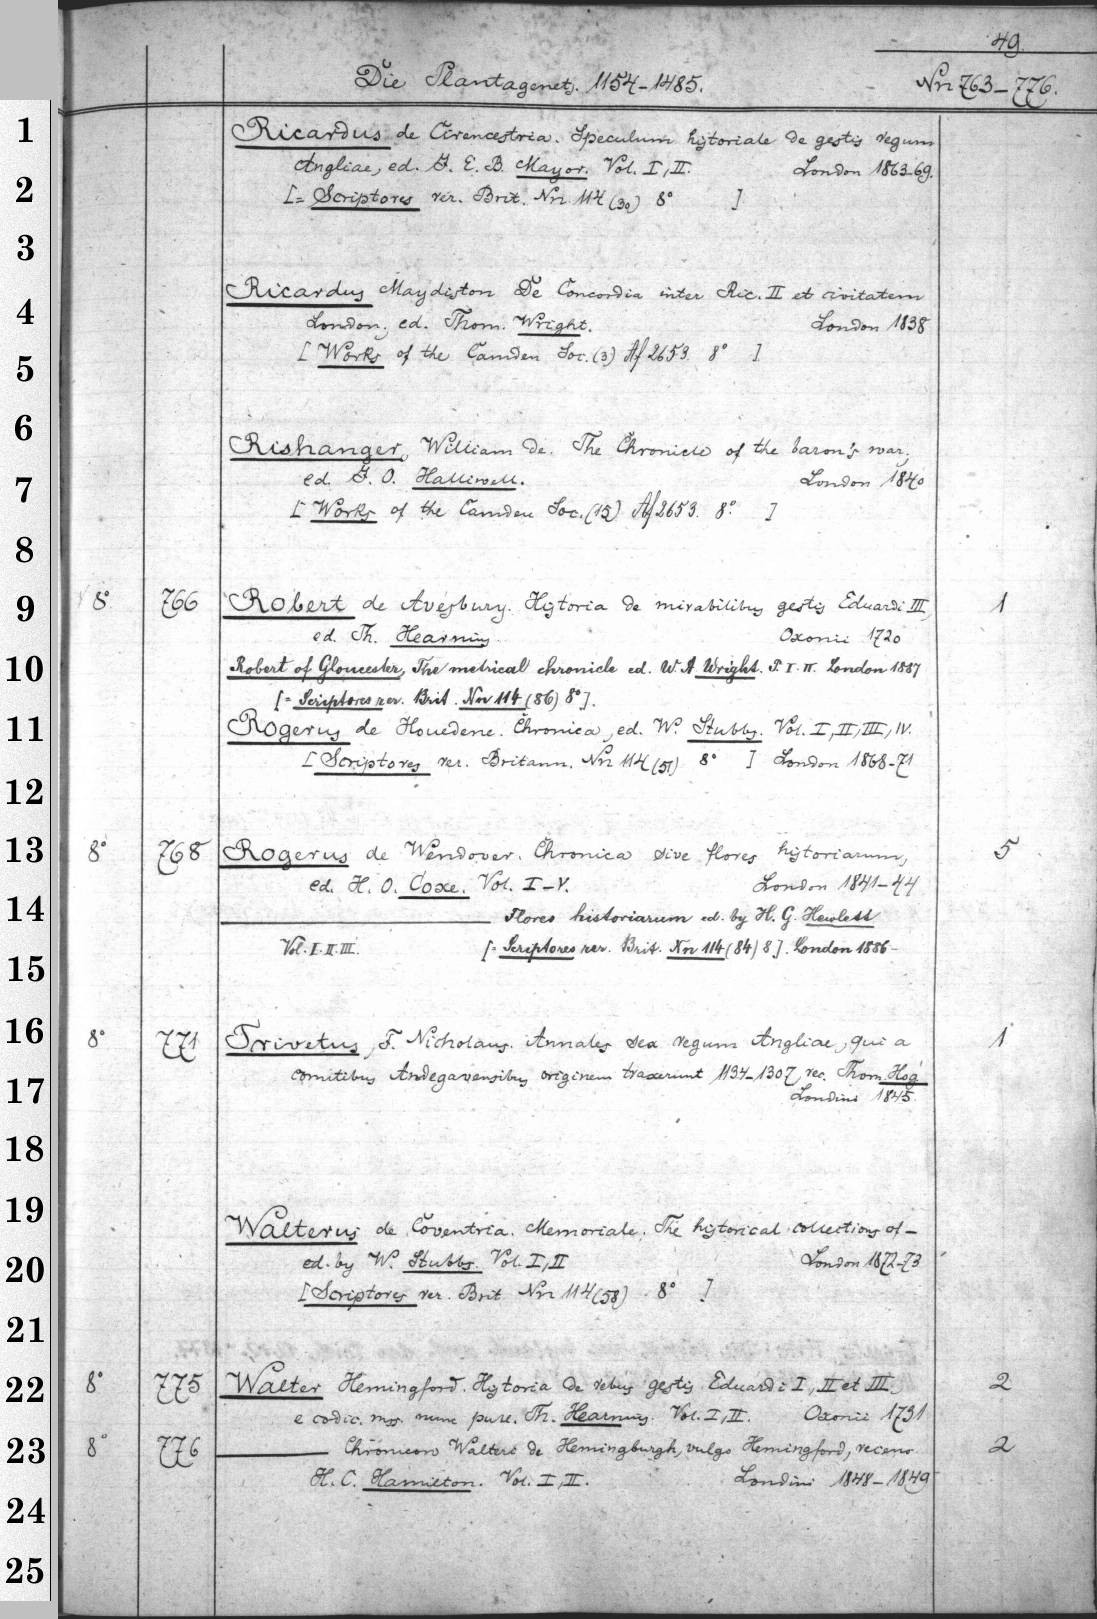 49.
Die Plantagenets. 1154-1485.
Nrr 763-776.
1
Ricardus de Cirencestria. Speculum historiale de gestis regum
Angliae, ed. J. E. B. Mayor. Vol. I, II. London 1863-69.
2
[= Scriptores rer. Brit. Nrr. 114 (30) 8° ]
3
Ricardus Maydiston De Concordia inter Ric. II et civitatem
4
London, ed. Thom. Wright. London 1838
5
[ Works of the Camden Soc. (3) Af 2653. 8° ]
6
Rishanger, William de. The Chronicle of the baron's war,
7
ed. J. O. Halliwell. London 1840
[ Works of the Camden Soc. (15) Af 2653. 8°. ]
8
9
8° 766 Robert de Avesbury. Historia de mirabilibus gestis Eduardi III, 1
ed. Th. Hearnius. Oxonii 1720
10
Robert of Gloucester, The metrical chronicle ed. W. A. Wright. P. I. II. London 1887
[= Scriptores rer. Brit. Nrr 114 (86) 8°].
11
Rogerus de Houedene. Chronica, ed. W. Stubbs. Vol. I, II, III, IV.
[ Scriptores rer. Britann. Nrr 114 (51) 8° ] London 1868-71
12
13
8° 768 Rogerus de Wendover. Chronica sive flores historiarum, 5
ed. H. O. Coxe. Vol. I-V. London 1841-44
14
Flores historiarum ed. by H. G. Hewlett
Vol. I. II. III. [= Scriptores rer. Brit. Nrr 114 (84) 8]. London 1886-
15
16
8° 771 Trivetus, F. Nicholaus. Annales sex regum Angliae, qui a 1
17
comitibus Andegavensibus originem traxerunt 1134-1307, rec. Thom. Hog
Londini 1845.
18
19
Walterus de Coventria. Memoriale. The historical collections of -
20
ed. by W. Stubbs. Vol. I, II London 1872-73
[ Scriptores rer. Brit Nrr 114 (58) 8° ]
21
22
8° 775 Walter Hemingford. Historia de rebus gestis Eduardi I, II et III. 2
e codic. mss. nunc pu. Th. Hearnius. Vol. I, II. Oxonii 1731
23
8° 776 Chronicon Walteri de Hemingburgh, vulgo Hemingford, recens. 2
H. C. Hamilton. Vol. I, II. Londini 1848-1849
24
25